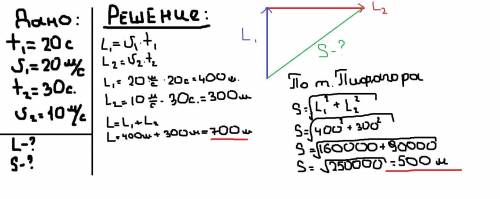 Дано:
t₁ = 20с
υ₁ = 20 м/с
t₂ = 30с.
υ₂ = 10 м/с
L-?
S-?
Решение:
L₁ = υ₁ · t₁
L₂ = υ₂ · t₂
L₁ = 20 м/с · 20с = 400 м.
L₂ = 10 м/с · 30с. = 300 м
L = L₁ + L₂
L = 400м + 300м = 700 м
L₁
L₂
S-?
По т. Пифагора
S = √L₁² + L₂²
S = √400² + 300²
S = √160000 + 90000
S = √250000 = 500 м